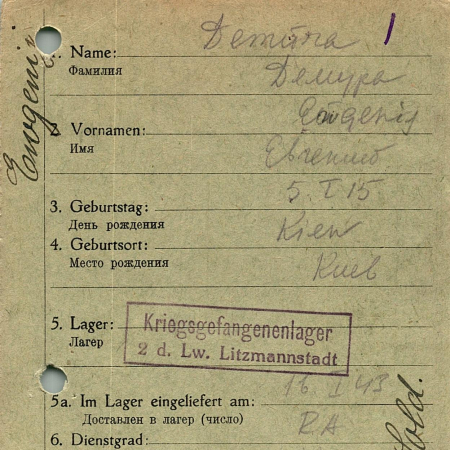 Demura
1. Name:
Фамилия
Демура
Ewgenij
2. Vornamen:
Имя
Евгений
Ewgenij
3. Geburtstag: 5. I 15
День рождения
4. Geburtsort: Kiew
Место рождения
Киев
5. Lager:
Лагерь
Kriegsgefangenenlager
2 d. Lw. Litzmannstadt
5a. Im Lager eingeliefert am: 16 I 43
Доставлен в лагерь (число)
R.A
6. Dienstgrad:
Sold.